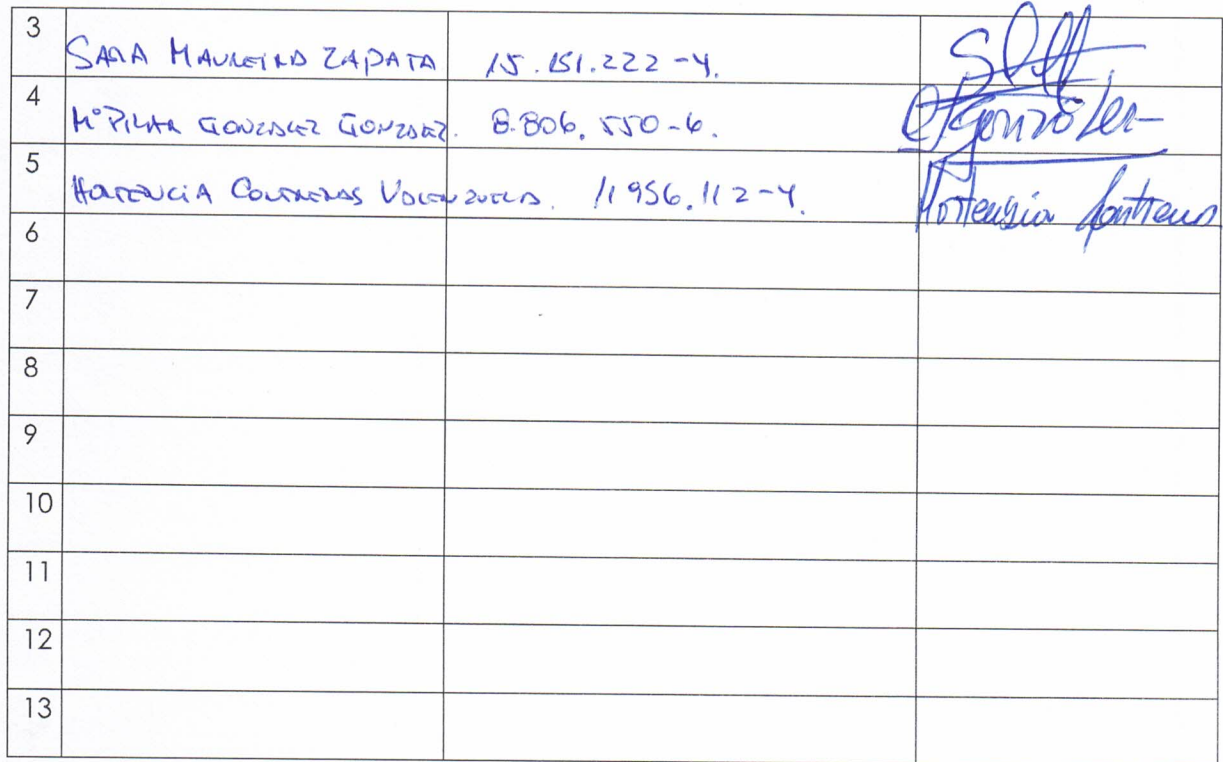 3 SARA MAUREIRA ZAPATA 15.151.222-4.
4 Mª PILAR GONZALEZ GONZALEZ. 8.806.550-6. González
5 HORTENCIA CONTRERAS VALENZUELA. 11956.112-4. Hortensia Contreras
6
7
8
9
10
11
12
13